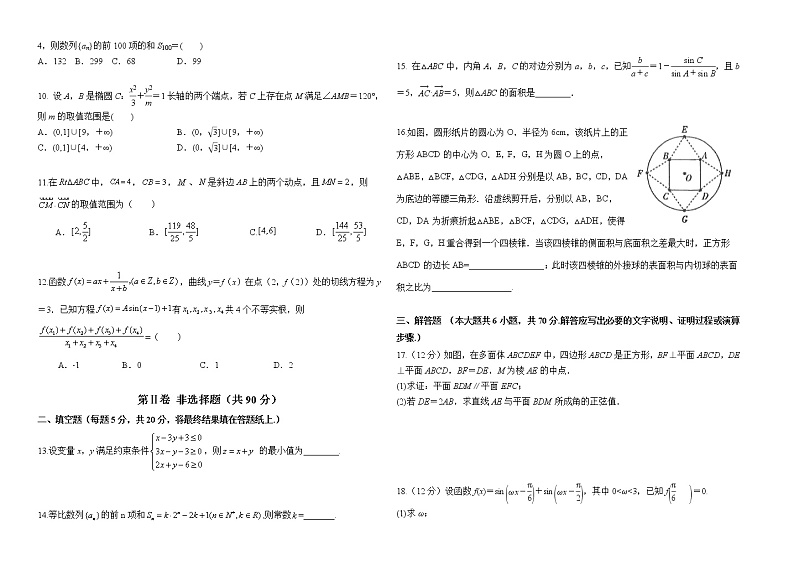 4，则数列{aₙ}的前 100 项的和 S₁₀₀＝(　　)
A．132　B．299　C．68　D．99
10．设 A，B 是椭圆 C：x²/3+y²/m＝1 长轴的两个端点，若 C 上存在点 M 满足∠AMB＝120°，
则 m 的取值范围是(　　)
A．(0,1]∪[9，+∞)　B．(0，√3]∪[9，+∞)
C．(0,1]∪[4，+∞)　D．(0，√3]∪[4，+∞)
11.在 Rt△ABC 中，CA=4，CB=3，M、N 是斜边 AB 上的两个动点，且 MN=2，则
CM·CN 的取值范围为（　　）
A．[2,5/2]　B．[119/25,48/5]　C.[4,6]　D．[144/25,53/5]
12.函数 f(x)=ax+1/(x+b),(a∈Z,b∈Z)，曲线 y＝f（x）在点（2，f（2））处的切线方程为 y
＝3，已知方程 f(x)=Asin(x−1)+1有 x₁,x₂,x₃,x₄共 4 个不等实根，则
(f(x₁)+f(x₂)+f(x₃)+f(x₄))/(x₁+x₂+x₃+x₄)=（　　）
A．-1　B．0　C．1　D．2
第Ⅱ卷 非选择题（共 90 分）
二、填空题（每题 5 分，共 20 分，将最终结果填在答题纸上.）
13.设变量 x，y 满足约束条件{x−3y+3≤0
3x−y−3≥0
2x+y−6≥0，则 z=x+y 的最小值为________.
14.等比数列{aₙ}的前 n 项和 Sₙ=k·2ⁿ−2k+1(n∈N*,k∈R),则常数 k=_______.
15. 在△ABC 中，内角 A，B，C 的对边分别为 a，b，c，已知 b/(a+c)＝1－sin C/(sin A+sin B)，且 b
＝5，AC·AB＝5，则△ABC 的面积是________．
16.如图，圆形纸片的圆心为 O，半径为 6cm，该纸片上的正
方形 ABCD 的中心为 O，E，F，G，H 为圆 O 上的点，
△ABE，△BCF，△CDG，△ADH 分别是以 AB，BC，CD，DA
为底边的等腰三角形．沿虚线剪开后，分别以 AB，BC，
CD，DA 为折痕折起△ABE，△BCF，△CDG，△ADH，使得
E，F，G，H 重合得到一个四棱锥．当该四棱锥的侧面积与底面积之差最大时，正方形
ABCD 的边长 AB=________________；此时该四棱锥的外接球的表面积与内切球的表面
积之比为________________．
E
B
A
F
O
H
C
D
G
三、解答题 （本大题共 6 小题，共 70 分.解答应写出必要的文字说明、证明过程或演算
步骤.）
17.（12 分）如图，在多面体 ABCDEF 中，四边形 ABCD 是正方形，BF⊥平面 ABCD，DE
⊥平面 ABCD，BF＝DE，M 为棱 AE 的中点．
(1)求证：平面 BDM∥平面 EFC；
(2)若 DE＝2AB，求直线 AE 与平面 BDM 所成角的正弦值．
18.（12 分）设函数 f(x)＝sin(ωx－π/6)＋sin(ωx－π/2)，其中 0<ω<3，已知 f(π/6)＝0.
(1)求 ω；